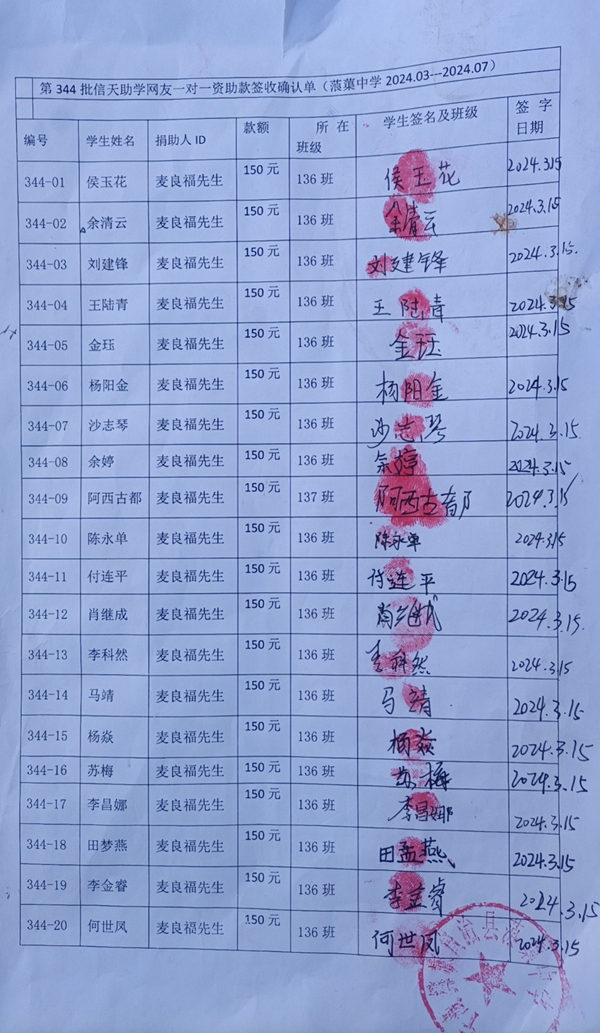 第 344 批信天助学网友一对一资助款签收确认单（蒗蕖中学 2024.03---2024.07）
编号 学生姓名 捐助人 ID 款额 所在班级 学生签名及班级 签字日期
344-01 侯玉花 麦良福先生 150 元 136 班 侯玉花 2024.3.15
344-02 余清云 麦良福先生 150 元 136 班 余清云 2024.3.15
344-03 刘建锋 麦良福先生 150 元 136 班 刘建锋 2024.3.15.
344-04 王陆青 麦良福先生 150 元 136 班 王陆青 2024.3.15
344-05 金珏 麦良福先生 150 元 136 班 金珏 2024.3.15
344-06 杨阳金 麦良福先生 150 元 136 班 杨阳金 2024.3.15
344-07 沙志琴 麦良福先生 150 元 136 班 沙志琴 2024.3.15.
344-08 余婷 麦良福先生 150 元 136 班 余婷 2024.3.15
344-09 阿西古都 麦良福先生 150 元 137 班 阿西古都 2024.3.15
344-10 陈永单 麦良福先生 150 元 136 班 陈永单 2024.3.15
344-11 付连平 麦良福先生 150 元 136 班 付连平 2024.3.15
344-12 肖继成 麦良福先生 150 元 136 班 肖继成 2024.3.15.
344-13 李科然 麦良福先生 150 元 136 班 李科然 2024.3.15
344-14 马靖 麦良福先生 150 元 136 班 马靖 2024.3.15
344-15 杨焱 麦良福先生 150 元 136 班 杨焱 2024.3.15
344-16 苏梅 麦良福先生 150 元 136 班 苏梅 2024.3.15
344-17 李昌娜 麦良福先生 150 元 136 班 李昌娜 2024.3.15
344-18 田梦燕 麦良福先生 150 元 136 班 田孟燕 2024.3.15
344-19 李金睿 麦良福先生 150 元 136 班 李金睿 2024.3.15
344-20 何世凤 麦良福先生 150 元 136 班 何世凤 2024.3.15